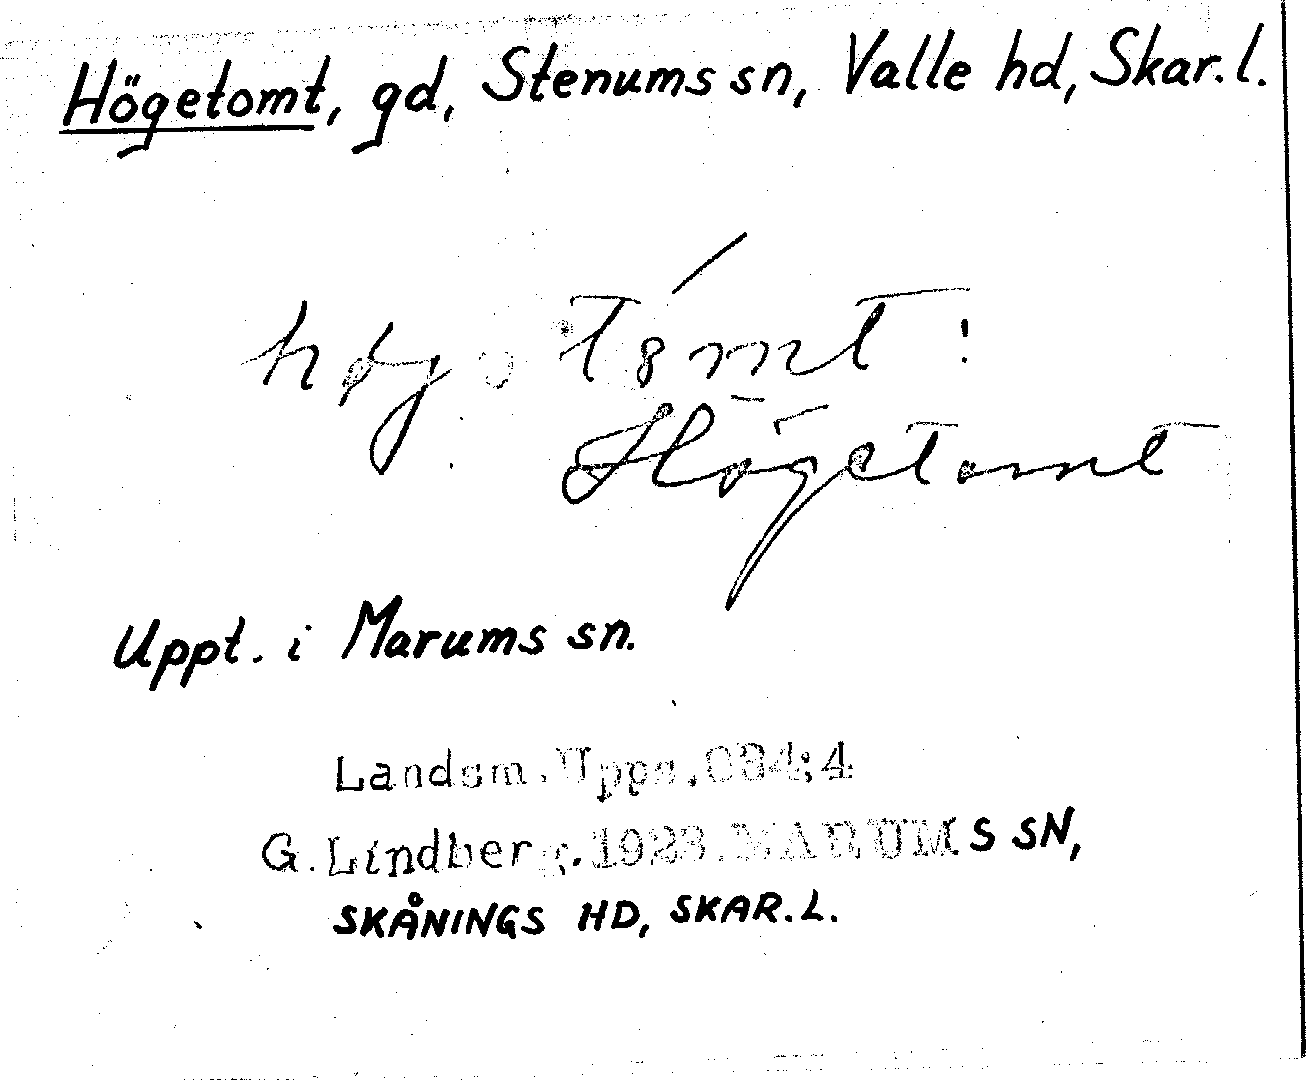 Högetomt, gd, Stenums sn, Valle hd, Skar. l.
Högetomt
Uppt. i Marums sn.
Landsm. Upps. 034:4
G. Lindberg. 1923. MARUMS SN,
SKÅNINGS HD, SKAR. L.